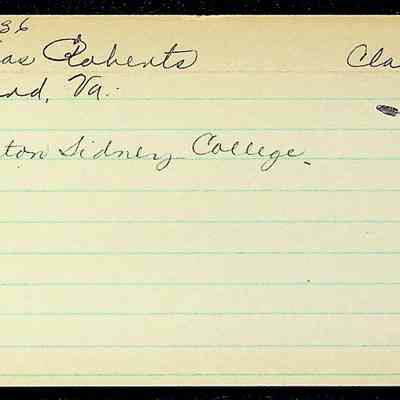 36
as Roberts Cla
nd, Va.
ton Sidney College